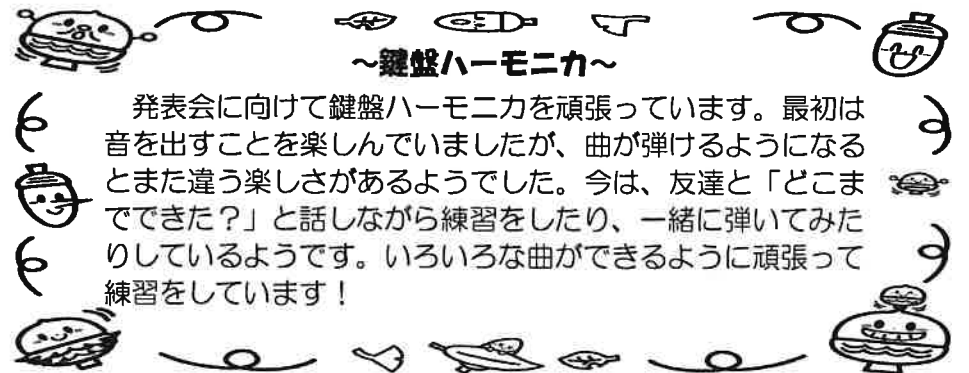 ～鍵盤ハーモニカ～
発表会に向けて鍵盤ハーモニカを頑張っています。最初は
音を出すことを楽しんでいましたが、曲が弾けるようになる
とまた違う楽しさがあるようでした。今は、友達と「どこま
でできた？」と話しながら練習をしたり、一緒に弾いてみた
りしているようです。いろいろな曲ができるように頑張って
練習をしています！